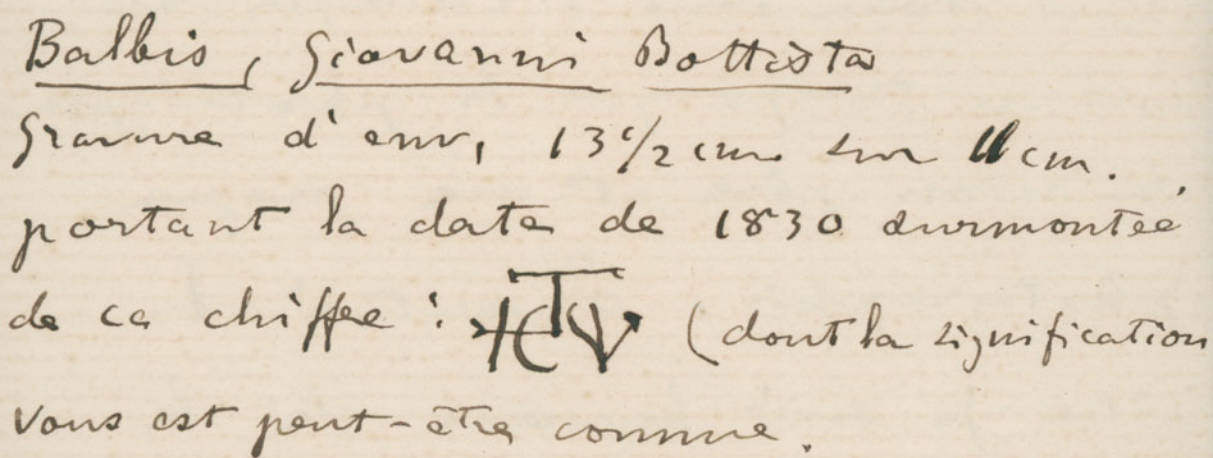 Balbis, Giovanni Battista
Gravure d'env. 13 1/2 cm sur 11 cm.
portant la date de 1830 surmontée
de ce chiffre : (dont la signification
vous est peut-être connue.